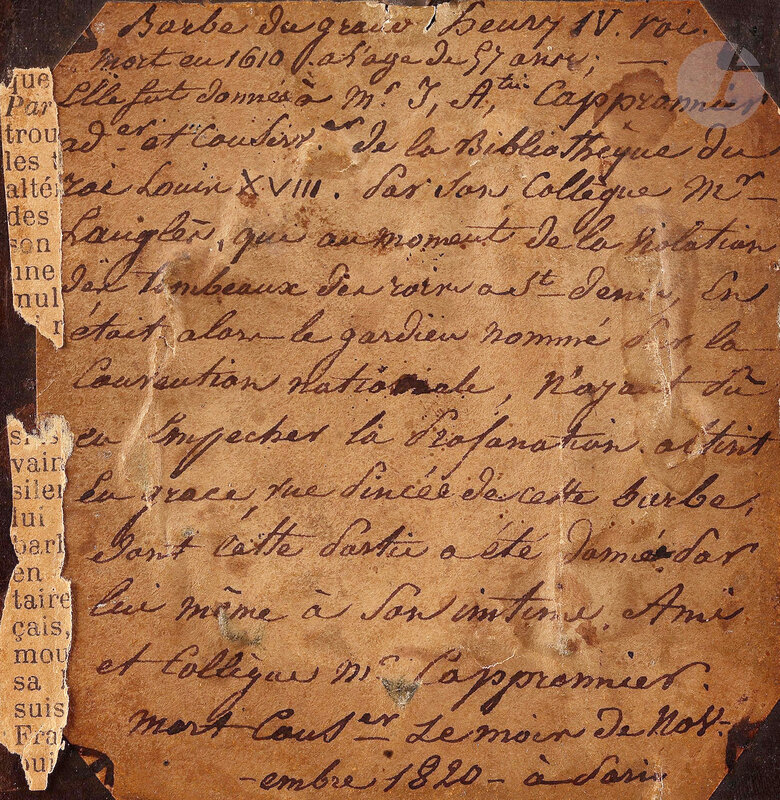 Barbe du grand henry IV. roi.
mort en 1610. a l'age de 57 ans; —
Elle fut donnée à Mr J, A,, Capprommier
ad.er et Conserv.er de la Bibliothèque du
roi Louis XVIII. par Son Collègue Mr —
Langlès, qui au moment de la violation
des tombeaux des rois a St- denis, En
était alors le gardien nommé par la
Convention nationale, N'ayant pû
en Empecher la Profanation. obtint
En grace, une Pincée de cette barbe,
dont Cette Partie a été donnée Par
lui même à Son intime. Ami
et Collègue Mr Cappronnier.
mort Cons.er Le mois de Nov-
-embre 1820 - à Paris
que
Par
trou
les
alté
des
son
une
nul
vain
siler
lui
barl
en
taire
çais,
mou
sa
suis
Fra
oui